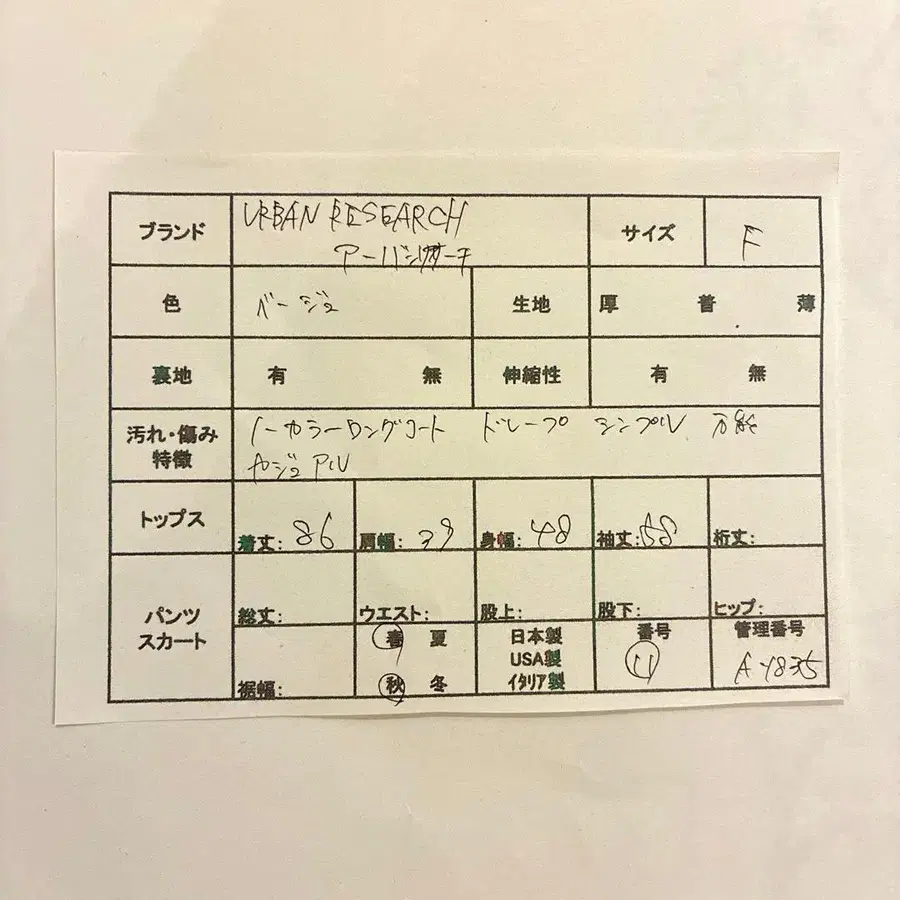 ブランド URBAN RESEARCH サイズ F
アーバンリサーチ
色 ベージュ 生地 厚 普 薄
裏地 有 無 伸縮性 有 無
汚れ・傷み ノーカラーロングコート ドレープ シンプル 万能
特徴 カジュアル
トップス 着丈: 86 肩幅: 39 身幅: 48 袖丈: 58 裄丈:
パンツ 総丈: ウエスト: 股上: 股下: ヒップ:
スカート 裾幅: 春 夏 日本製 番号 管理番号
USA製 11 A-1835
秋 冬 イタリア製